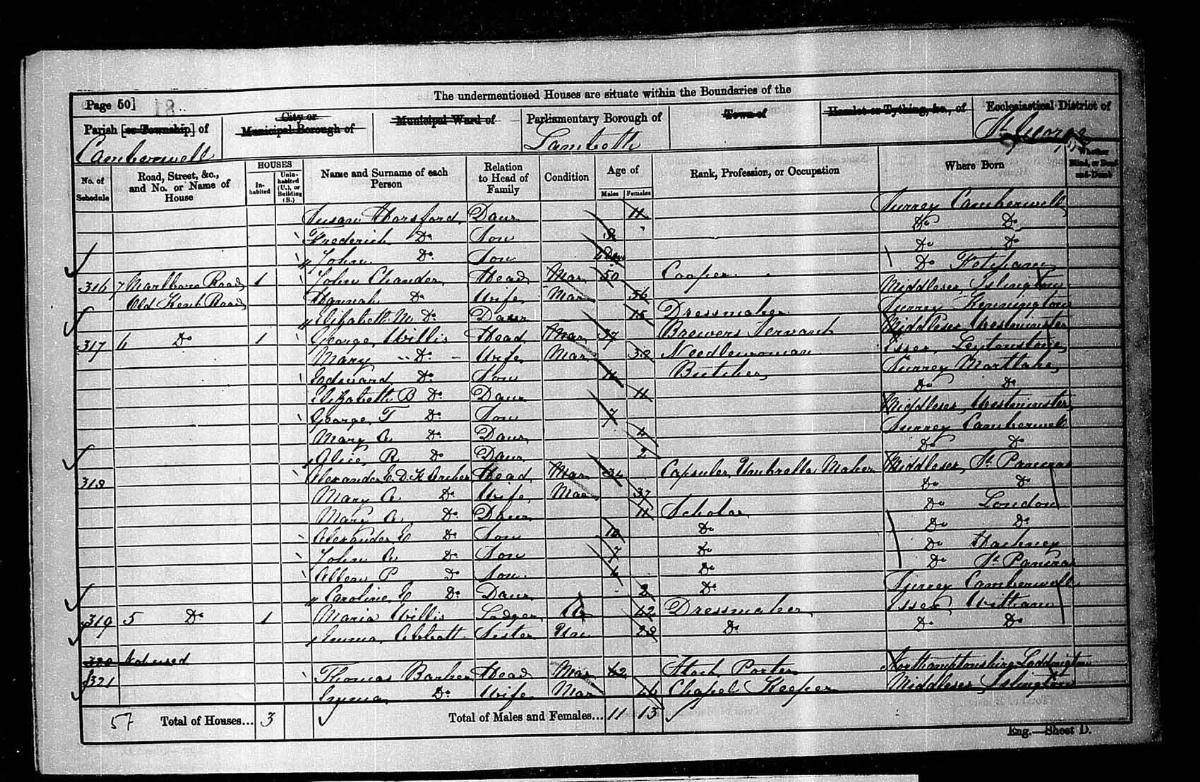 Page 50] 18
The undermentioned Houses are situate within the Boundaries of the
Parish [or Township] of Camberwell
City or Municipal Borough of
Municipal Ward of
Parliamentary Borough of Lambeth
Town of
Hamlet or Tything, &c., of
Ecclesiastical District of St George
No. of Schedule
Road, Street, &c., and No. or Name of House
HOUSES
Inhabited
Uninhabited (U.), or Building (B.)
Name and Surname of each Person
Relation to Head of Family
Condition
Age of
Males
Females
Rank, Profession, or Occupation
Where Born
Whether Blind, or Deaf-and-Dumb
Susan Horsford Daur 11 Surrey Camberwell
Frederick Do Son Do Do
John Do Son Do Do
316 7 Marlboro Road, 1 John Chander Head Mar 50 Cooper Do
Old Kent Road Hannah Do Wife Mar 56 Middlesex Islington
Elizabeth M. Do Daur 15 Dressmaker Surrey Kennington
317 6 Do 1 George Willis Head Mar 39 Brewers Servant Middlesex Westminster
Mary Do Wife Mar 32 Needlewoman Essex Leytonstone
Edward Do Son Butcher Surrey Mortlake
Elizabeth B Do Daur 11 Do Do
George T Do Son 7 Middlesex Westminster
Mary A. Do Daur 4 Surrey Camberwell
Alice R. Do Daur 2 Do Do
318 Alexander E.D.H. Archer Head Mar 34 Umbrella Maker Middlesex, St Pancras
Mary A. Do Wife Mar 37 Do Do
Mary A. Do Daur 11 Scholar Do London
Alexander E Do Son 10 Do Do Do
John A. Do Son 7 Do Do Hackney
Albert P. Do Son 4 Do Do St Pancras
Caroline E Do Daur 2 Do Surrey Camberwell
319 5 Do 1 Maria Willis Lodger 42 Dressmaker Essex Witham
Emma Abbott Sister Un 22 Do Do Do
320 Not used
321 Thomas Barker Head Mar 42 Porter Northamptonshire Loddington
Emma Do Wife Mar 46 Chapel Keeper Middlesex, Islington
57 Total of Houses... 3 Total of Males and Females... 11 13
Eng.—Sheet D.